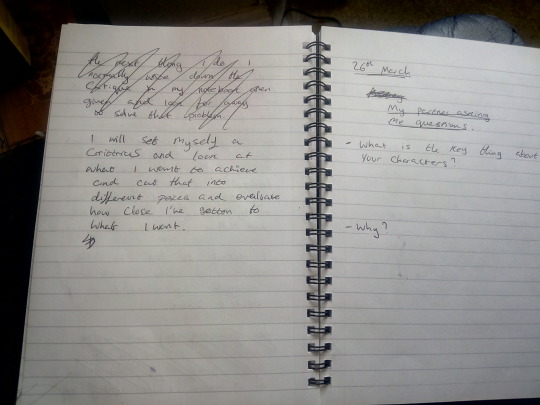 The next thing I do I
normally write down the
Critique in my notebook then
given and look for ways
to solve that problem.
I will set myself a
and look at
what I want to achieve
and cut that into
different and evaluate
how close I've gotten to
what I want.
26th March
My partner asking
me questions.
- What is the key thing about
your characters?
- Why?